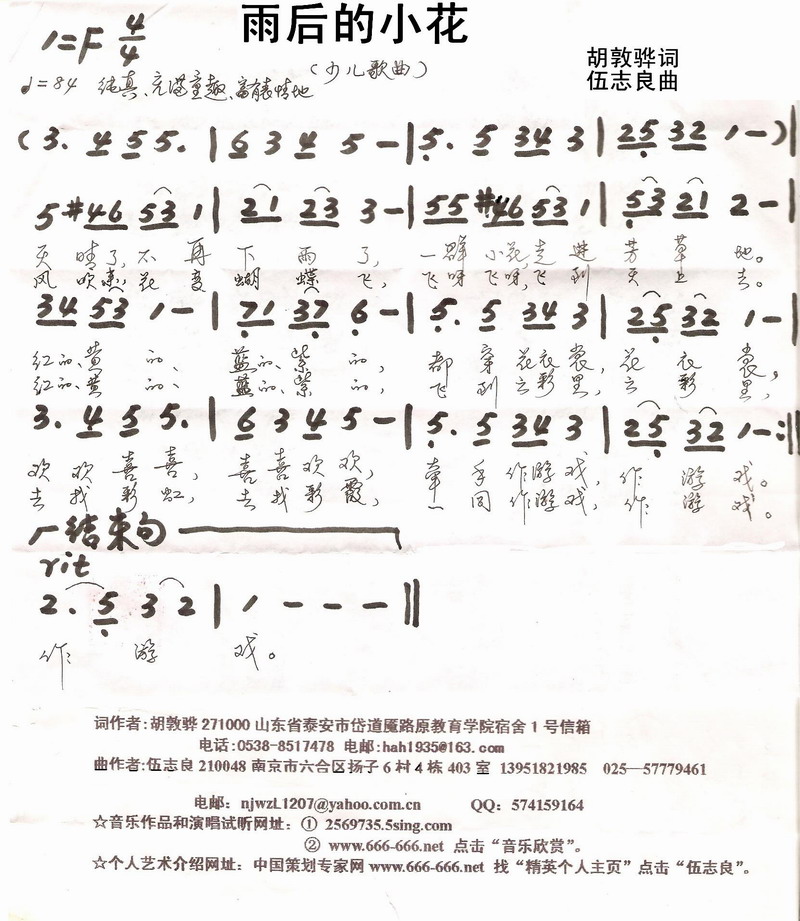 雨后的小花
1=F 4/4
(少儿歌曲)
胡敦骅词
伍志良曲
♩=84 纯真、充满童趣、富有表情地
(3. 4 5 5. | 6 3 4 5 - | 5. 5 34 3 | 25 32 1 - )|
5 #46 53 1 | 21 23 3 - | 55 #46 53 1 | 53 21 2 - |
天晴了,不再下雨了,一群小花,走进芳草地。
风吹来,花变蝴蝶飞,飞呀飞呀,飞到天上去。
34 53 1 - | 71 37 6 - | 5. 5 34 3 | 25 32 1 - |
红的、黄的、蓝的、紫的,都穿花衣裳,花衣裳,
红的、黄的、蓝的、紫的,飞到云彩里,云彩里,
3. 4 5 5. | 6 3 4 5 - | 5. 5 34 3 | 25 32 1 - :||
欢欢喜喜,喜喜欢欢,牵手作游戏,作游戏。
去找彩虹,去找彩霞,一同作游戏,作游戏。
结束句
rit
2. 5 3 2 | 1 - - - ||
作游戏。
词作者:胡敦骅 271000 山东省泰安市岱道魇路原教育学院宿舍 1 号信箱
电话:0538-8517478 电邮:hah1935@163.com
曲作者:伍志良 210048 南京市六合区扬子 6 村 4 栋 403 室 13951821985 025—57779461
电邮: njwzL1207@yahoo.com.cn QQ: 574159164
☆音乐作品和演唱试听网址: ① 2569735.5sing.com
② www.666-666.net 点击“音乐欣赏”。
☆个人艺术介绍网址: 中国策划专家网 www.666-666.net 找“精英个人主页”点击“伍志良”。